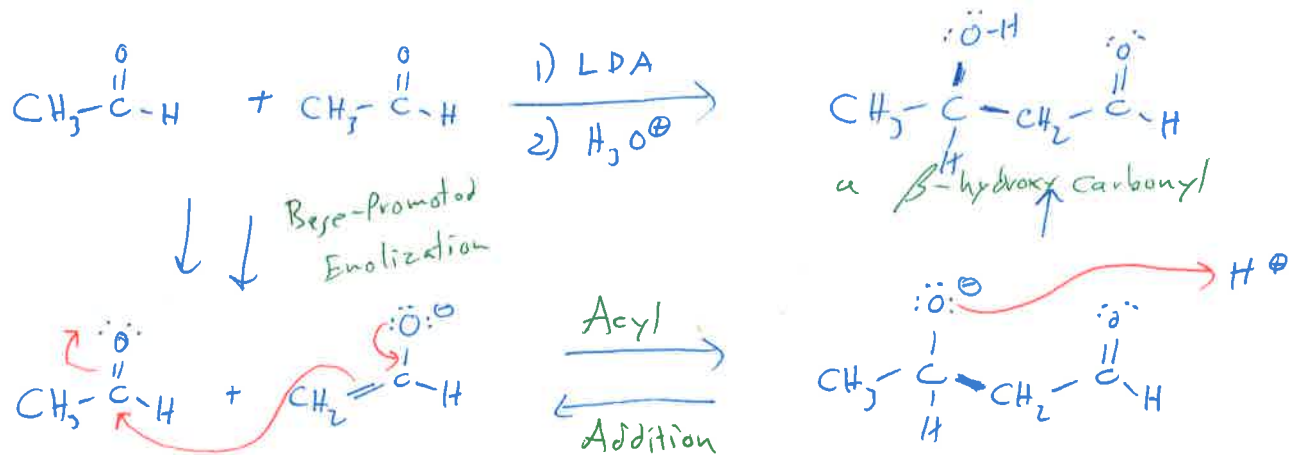 O
CH₃-C-H + CH₃-C-H
O
1) LDA
2) H₃O⊕
:Ö-H :O:
CH₃-C-CH₂-C-H
H
a β-hydroxy carbonyl
Base-Promoted
Enolization
:O: :Ö:⊖
CH₃-C-H + CH₂=C-H
Acyl
Addition
:Ö:⊖ :O:
CH₃-C-CH₂-C-H
H
H⊕